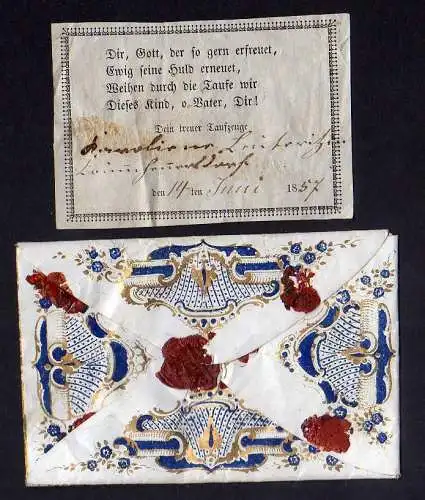 Dir, Gott, der so gern erfreuet,
Ewig seine Huld erneuet,
Weihen durch die Taufe wir
Dieses Kind, o Vater, Dir!
Dein treuer Taufzeuge
Karoline
den 14ten Juni 1857